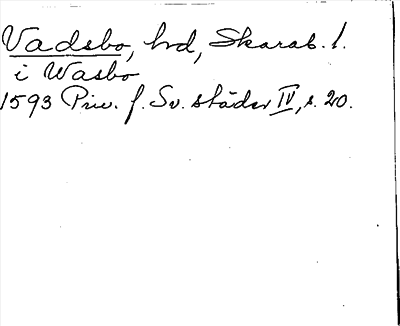 Vadsbo, hd, Skarab. l.
i Wasbo
1593 Priv. f. Sv. städer IV, s. 20.